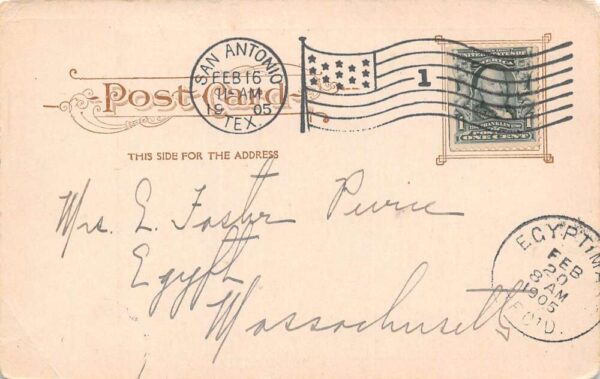 SAN ANTONIO
FEB 16
11-AM
1905
TEX.
1
Post Card
UNITED STATES OF AMERICA
FRANKLIN
1 ONE CENT
THIS SIDE FOR THE ADDRESS
Mrs. E. Foster
Egypt
Massachusetts
EGYPT, MA
FEB
20
8 AM
1905